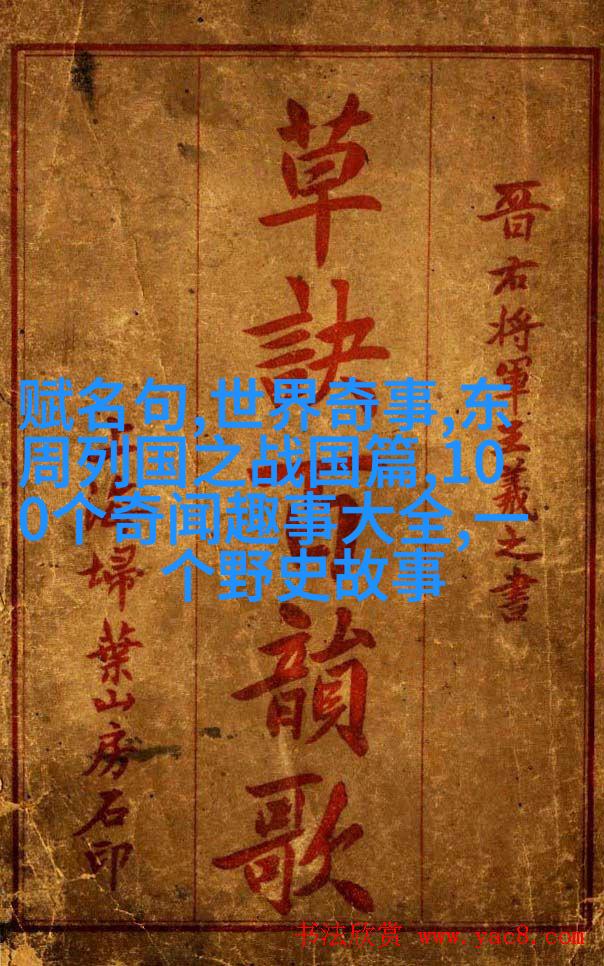 晉右將軍王羲之書
草訣韻歌
掃葉山房石印
赋名句,世界奇事,东
周列国之战国篇,10
0个奇闻趣事大全,一
个野史故事
书法欣赏 www.yac8.com